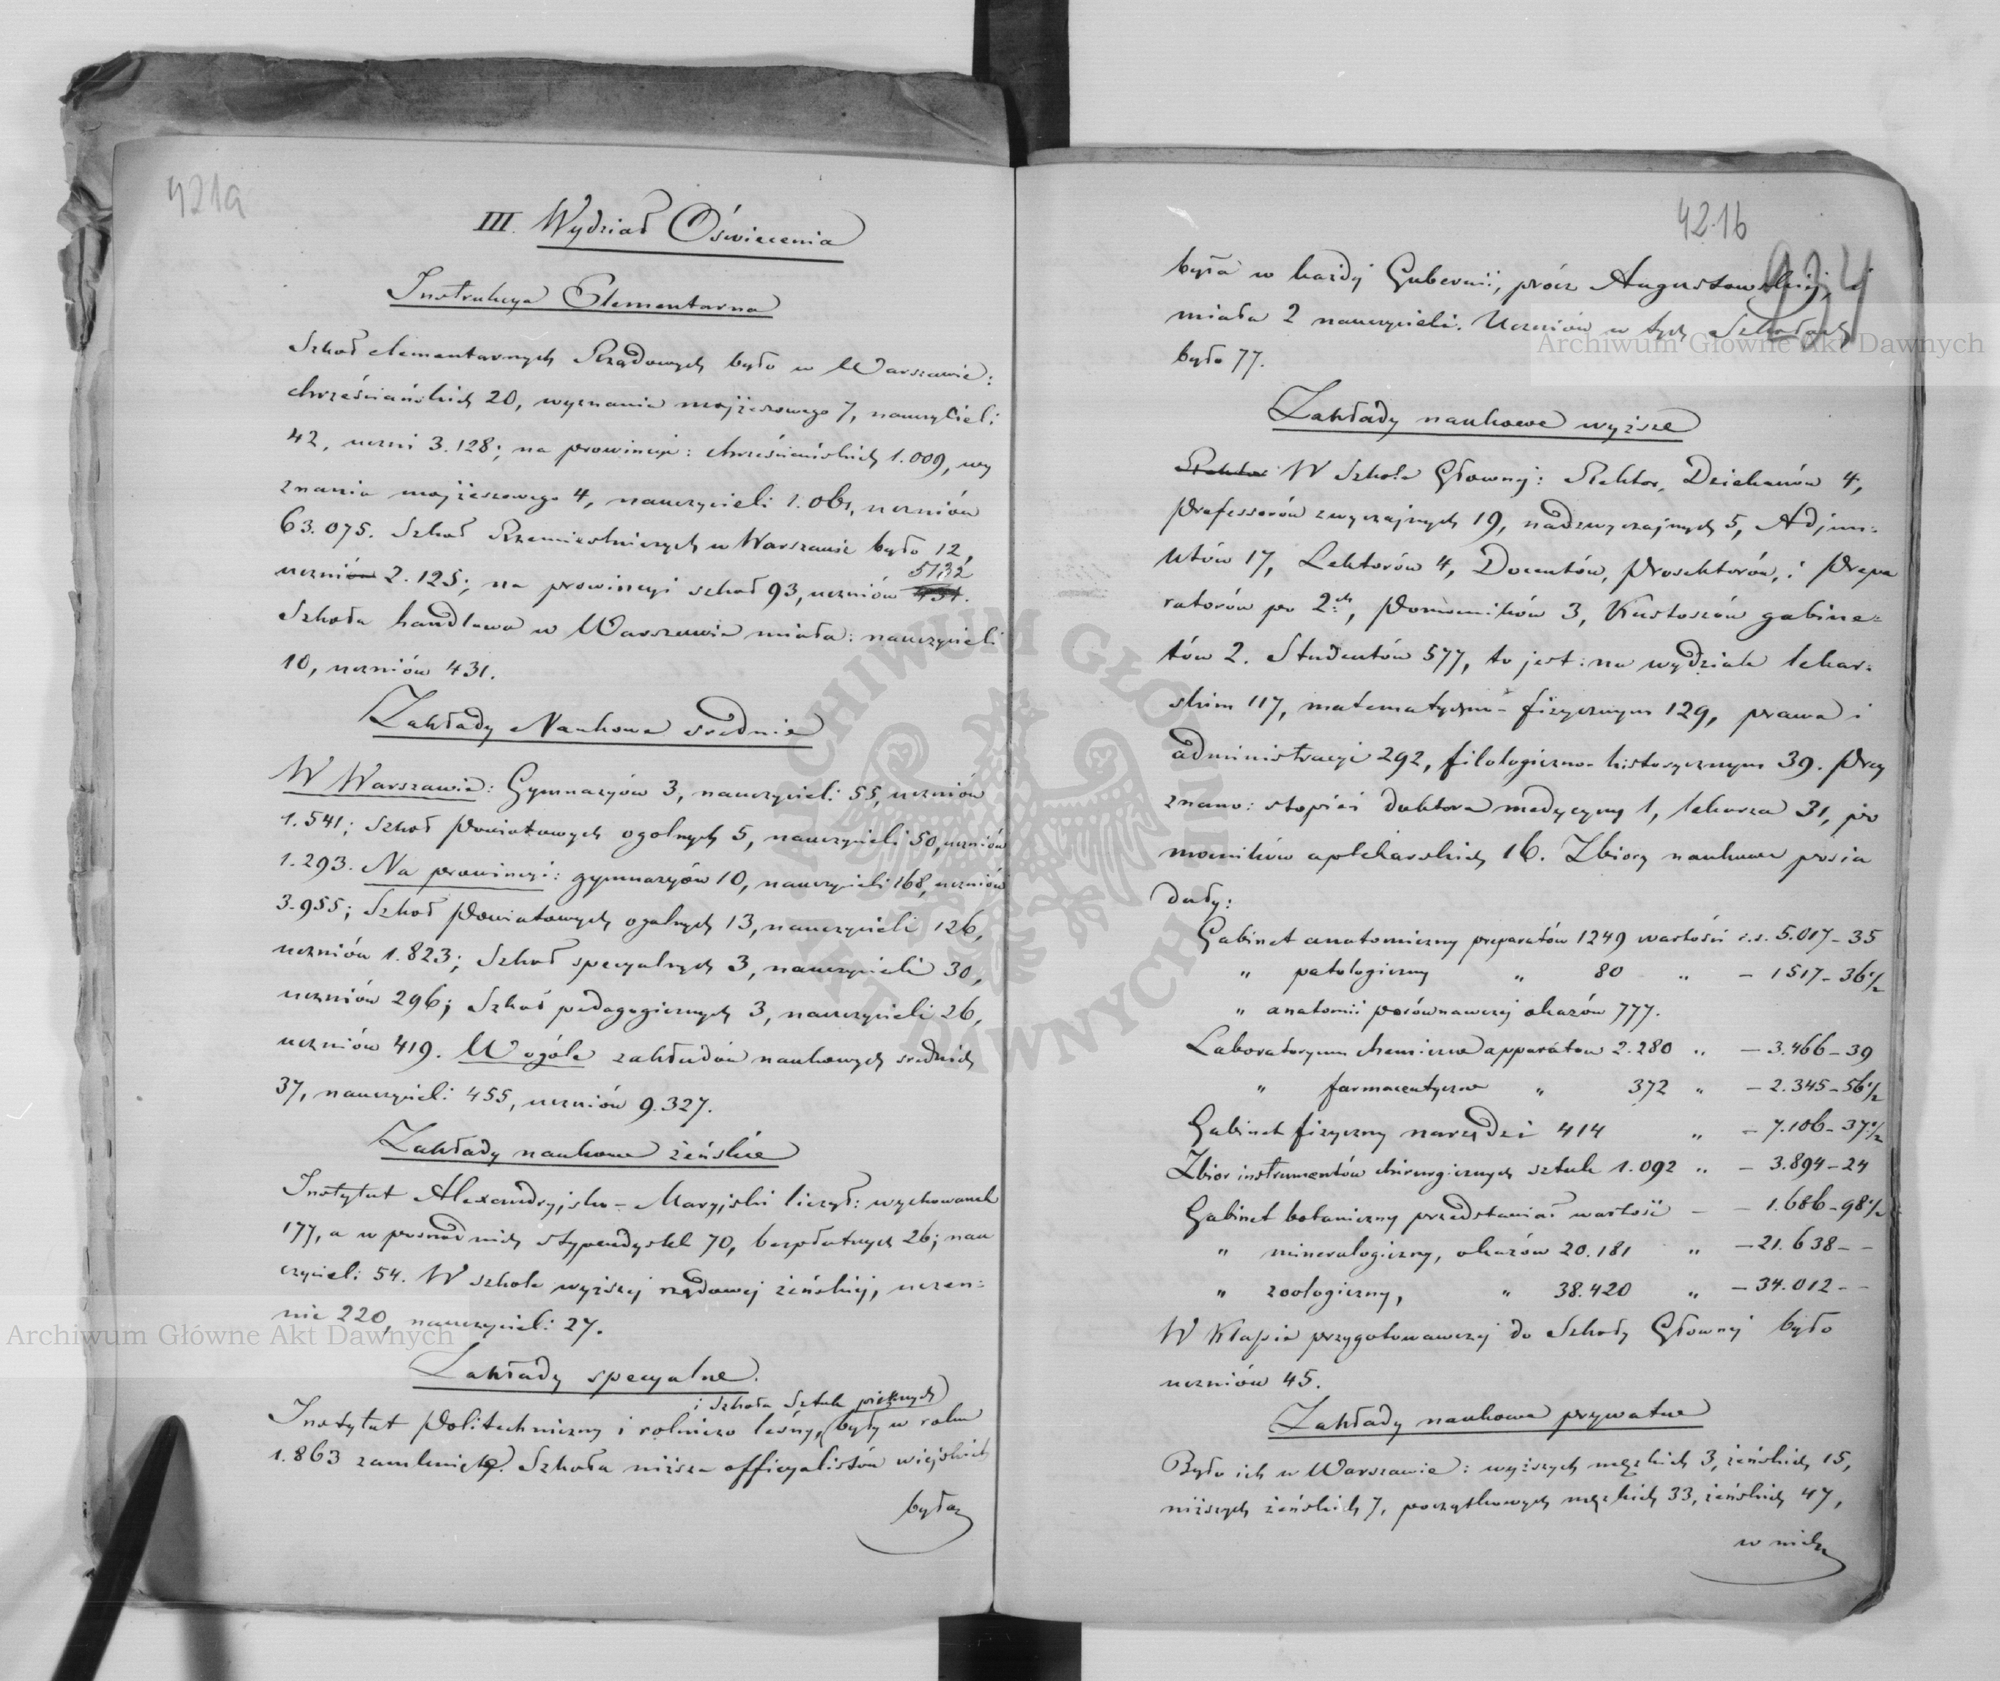 421a
III. Wydział Oświecenia
Instrukcya Elementarna
Szkół elementarnych Rządowych było w Warszawie:
chrześciańskich 20, wyznania mojżeszowego 7, nauczycieli
42, uczni 3.128; na prowincyi: chrześciańskich 1.009, wy
znania mojżeszowego 4, nauczycieli 1.061, uczniów
63.075. Szkół Rzemieślniczych w Warszawie było 12,
uczniów 2.125; na prowincyi szkół 93, uczniów 5132
Szkoła handlowa w Warszawie miała: nauczycieli
10, uczniów 431.
Zakłady Naukowe srednie
W Warszawie: Gymnazyów 3, nauczycieli 55, uczniów
1.541; Szkół Powiatowych ogolnych 5, nauczycieli 50, uczniów
1.293. Na prowincyi: gymnazyów 10, nauczycieli 168, uczniów
3.955; Szkół Powiatowych ogolnych 13, nauczycieli 126,
uczniów 1.823; Szkół specyalnych 3, nauczycieli 30,
uczniów 296; Szkół pedagogicznych 3, nauczycieli 26,
uczniów 419. W ogóle zakładów naukowych srednich
37, nauczycieli 455, uczniów 9.327.
Zakłady naukowe żeńskie
Instytut Alexandryjsko-Maryjski liczył: wychowanek
177, a w posrod nich stypendystek 70, bezpłatnych 26; nau
czycieli 54. W szkole wyższej rządowej żeńskiej, uczen-
nic 220, nauczycieli 27.
Zakłady specyalne.
i Szkoła Sztuk pięknych
Instytut Politechniczny i rolniczo leśny, były w roku
1.863 zamknięte. Szkoła niższa officyalistów wiejskich
była
42.1b
934
była w każdej Gubernii, prócz Augustowskiej, i
miała 2 nauczycieli. Uczniów w tych Szkołach
było 77.
Zakłady naukowe wyższe
Rektor W Szkole Głownej: Rektor, Dziekanów 4,
Professorów zwyczajnych 19, nadzwyczajnych 5, Adjun-
któw 17, Lektorów 4, Docentów, Prosektorów, i Prepa
ratorów po 2ch, Pomocników 3, Kustoszów gabine-
tów 2. Studentów 577, to jest: na wydziale lekar-
skim 117, matematyczno-fizycznym 129, prawa i
administracyi 292, filologiczno-historycznym 39. Przy
znano: stopień doktora medycyny 1, lekarza 31, po
mocników aptekarskich 16. Zbiory naukowe posia
dały:
Gabinet anatomiczny preparatów 1249 wartości r.s. 5.017-35
" patologiczny " 80 " - 1517-36½
" anatomii porównawczej okazów 777.
Laboratoryum chemiczne apparatow 2.280 " - 3.466-39
" farmaceutyczne " 372 " - 2.345-56½
Gabinet fizyczny narzędzi 414 " - 7.106-37½
Zbior instrumentów chirurgicznych sztuk 1.092 " - 3.894-24
Gabinet botaniczny przedstawiał wartość - - 1.686-98½
" mineralogiczny, okazów 20.181 " - 21.638 - -
" zoologiczny, " 38.420 " - 34.012 - -
W Klasie przygotowawczej do Szkoły Głownej było
uczniów 45.
Zakłady naukowe prywatne
Było ich w Warszawie: wyższych męzkich 3, żeńskich 15,
niższych żeńskich 7, początkowych męzkich 33, żeńskich 47,
w nich
Archiwum Główne Akt Dawnych
Archiwum Główne Akt Dawnych
ARCHIWUM GŁÓWNE AKT DAWNYCH